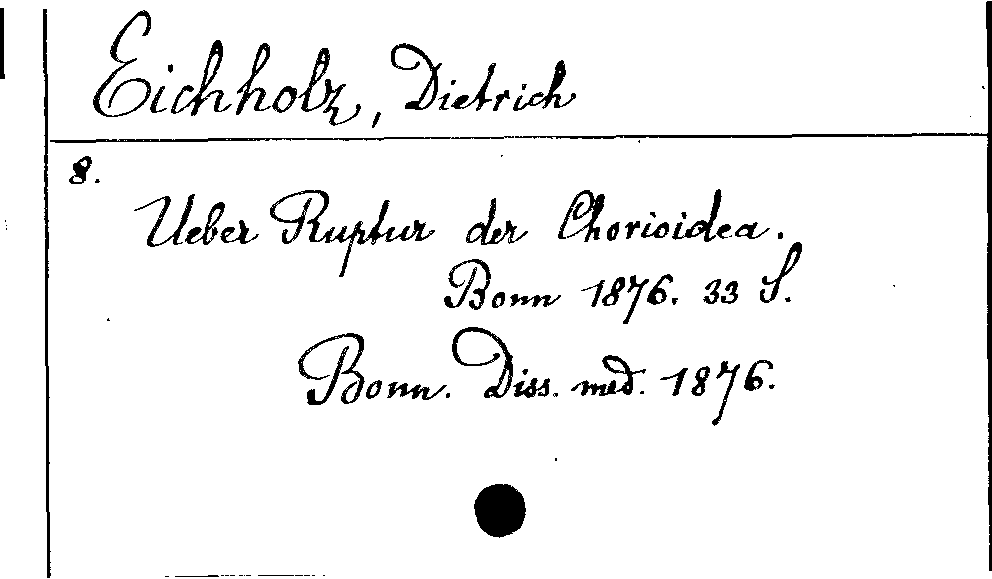 Eichholz, Dietrich
8.
Ueber Ruptur der Chorioidea.
Bonn 1876. 33 S.
Bonn. Diss. med. 1876.